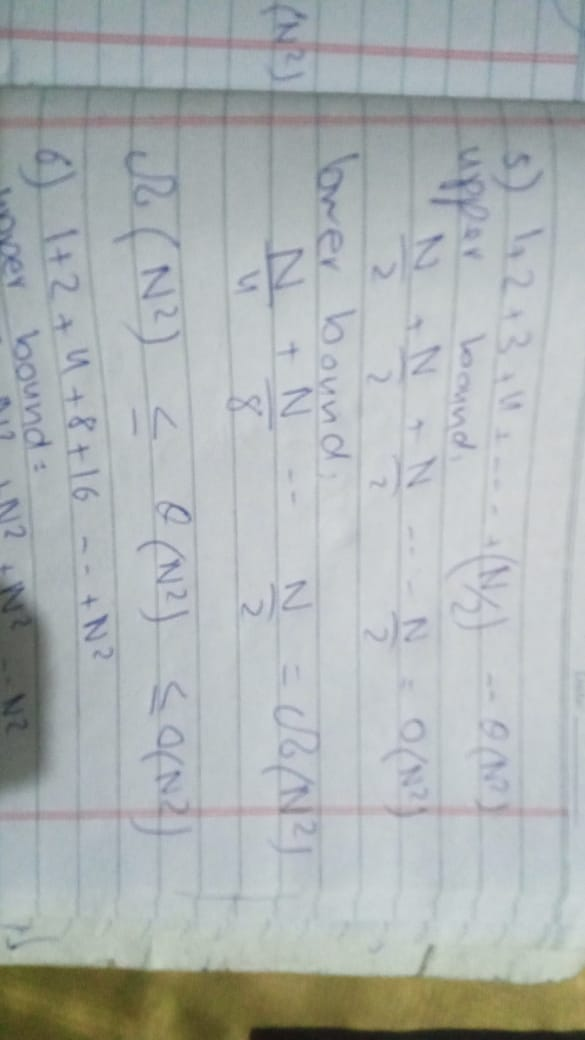 (N²)
5) 1+2+3+4+---+(N/2) -- θ(N²)
upper bound,
N/2 + N/2 + N/2 --- N/2 = O(N²)
lower bound,
N/4 + N/8 -- N/2 = Ω(N²)
Ω(N²) ≤ θ(N²) ≤ O(N²)
6) 1+2+4+8+16 --+N²
upper bound:
N² + N² -- N²